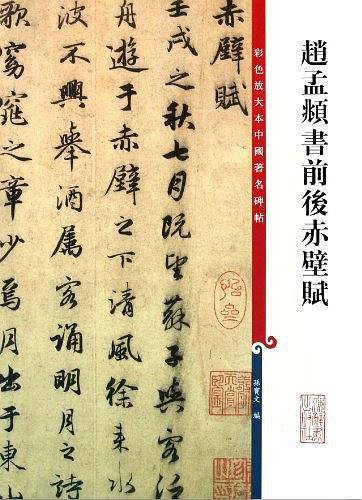 趙孟頫書前後赤壁賦
彩色放大本中國著名碑帖
孫寶文 編
赤壁賦
壬戌之秋七月既望蘇子與客泛
舟遊于赤壁之下清風徐来水
波不興舉酒属客誦明月之詩
歌窈窕之章少焉月出于東山